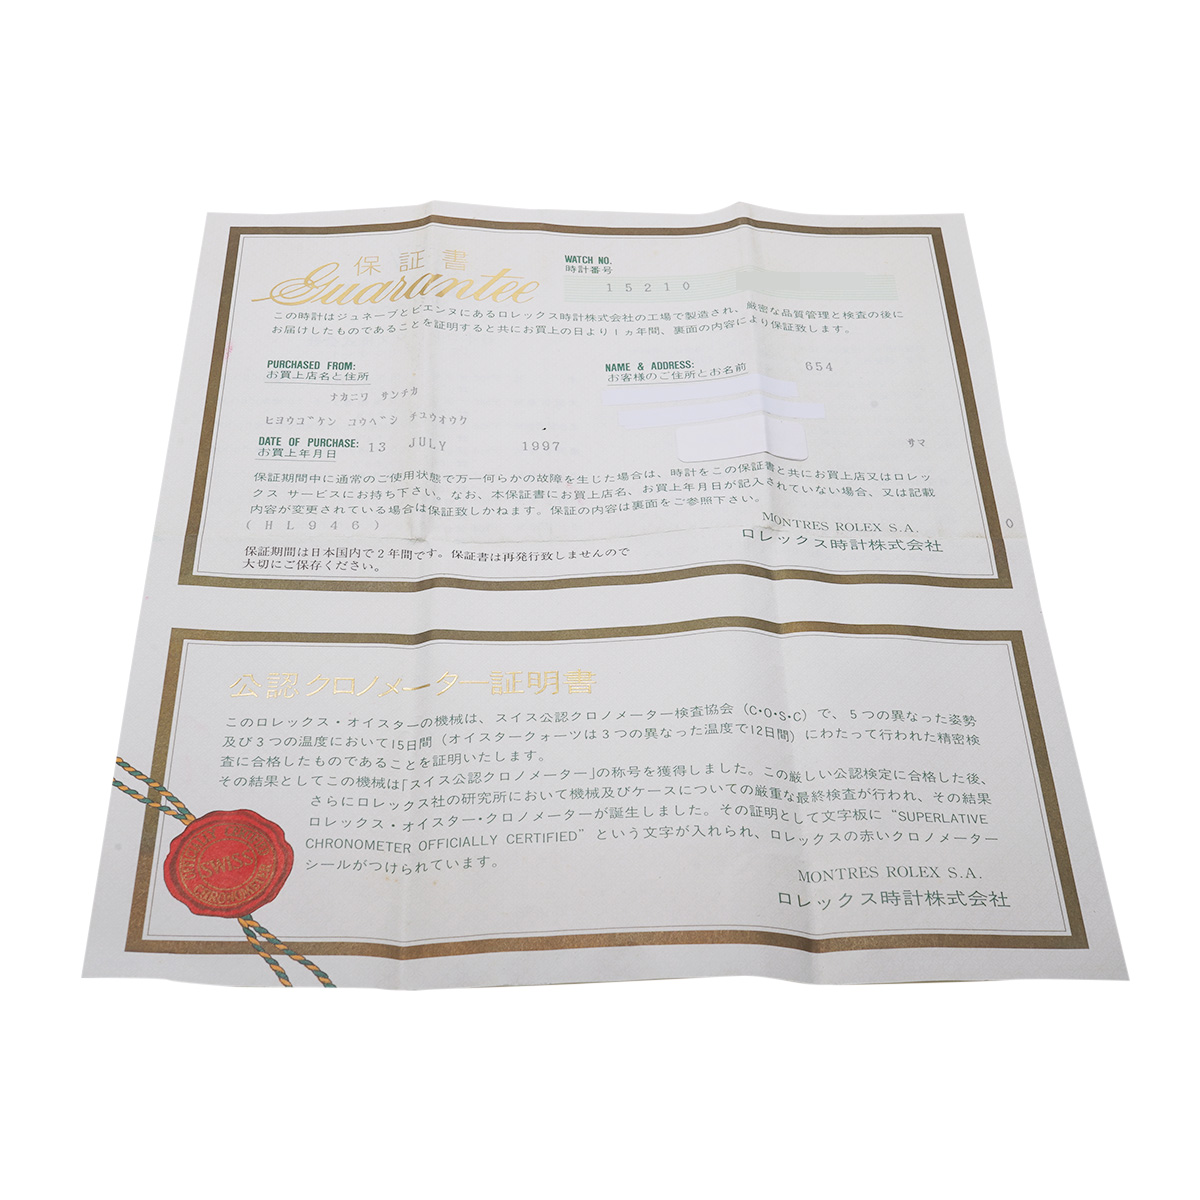 保証書
Guarantee
WATCH NO.
時計番号
15210
この時計はジュネーブとビエンヌにあるロレックス時計株式会社の工場で製造され、厳密な品質管理と検査の後に
お届けしたものであることを証明すると共にお買上の日より1ヵ年間、裏面の内容により保証致します。
PURCHASED FROM:
お買上店名と住所
ナカニワ サンチカ
ヒヨウゴケン コウベシ チユウオウク
NAME & ADDRESS:
お客様のご住所とお名前
654
サマ
DATE OF PURCHASE:
お買上年月日
13 JULY 1997
保証期間中に通常のご使用状態で万一何らかの故障を生じた場合は、時計をこの保証書と共にお買上店又はロレッ
クス サービスにお持ち下さい。なお、本保証書にお買上店名、お買上年月日が記入されていない場合、又は記載
内容が変更されている場合は保証致しかねます。保証の内容は裏面をご参照下さい。
(HL946)
MONTRES ROLEX S.A.
ロレックス時計株式会社
0
保証期間は日本国内で2年間です。保証書は再発行致しませんので
大切にご保存ください。
公認クロノメーター証明書
このロレックス・オイスターの機械は、スイス公認クロノメーター検査協会(C・O・S・C)で、5つの異なった姿勢
及び3つの温度において15日間(オイスタークォーツは3つの異なった温度で12日間)にわたって行われた精密検
査に合格したものであることを証明いたします。
その結果としてこの機械は「スイス公認クロノメーター」の称号を獲得しました。この厳しい公認検定に合格した後、
さらにロレックス社の研究所において機械及びケースについての厳重な最終検査が行われ、その結果
ロレックス・オイスター・クロノメーターが誕生しました。その証明として文字板に "SUPERLATIVE
CHRONOMETER OFFICIALLY CERTIFIED" という文字が入れられ、ロレックスの赤いクロノメーター
シールがつけられています。
MONTRES ROLEX S.A.
ロレックス時計株式会社
SWISS
CHRONOMETER